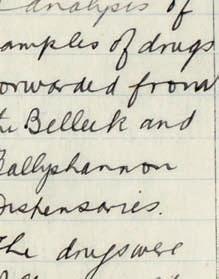 analysis of
amples of drugs
orwarded from
the Belleek and
Ballyshannon
Dispensaries.
The drugs were